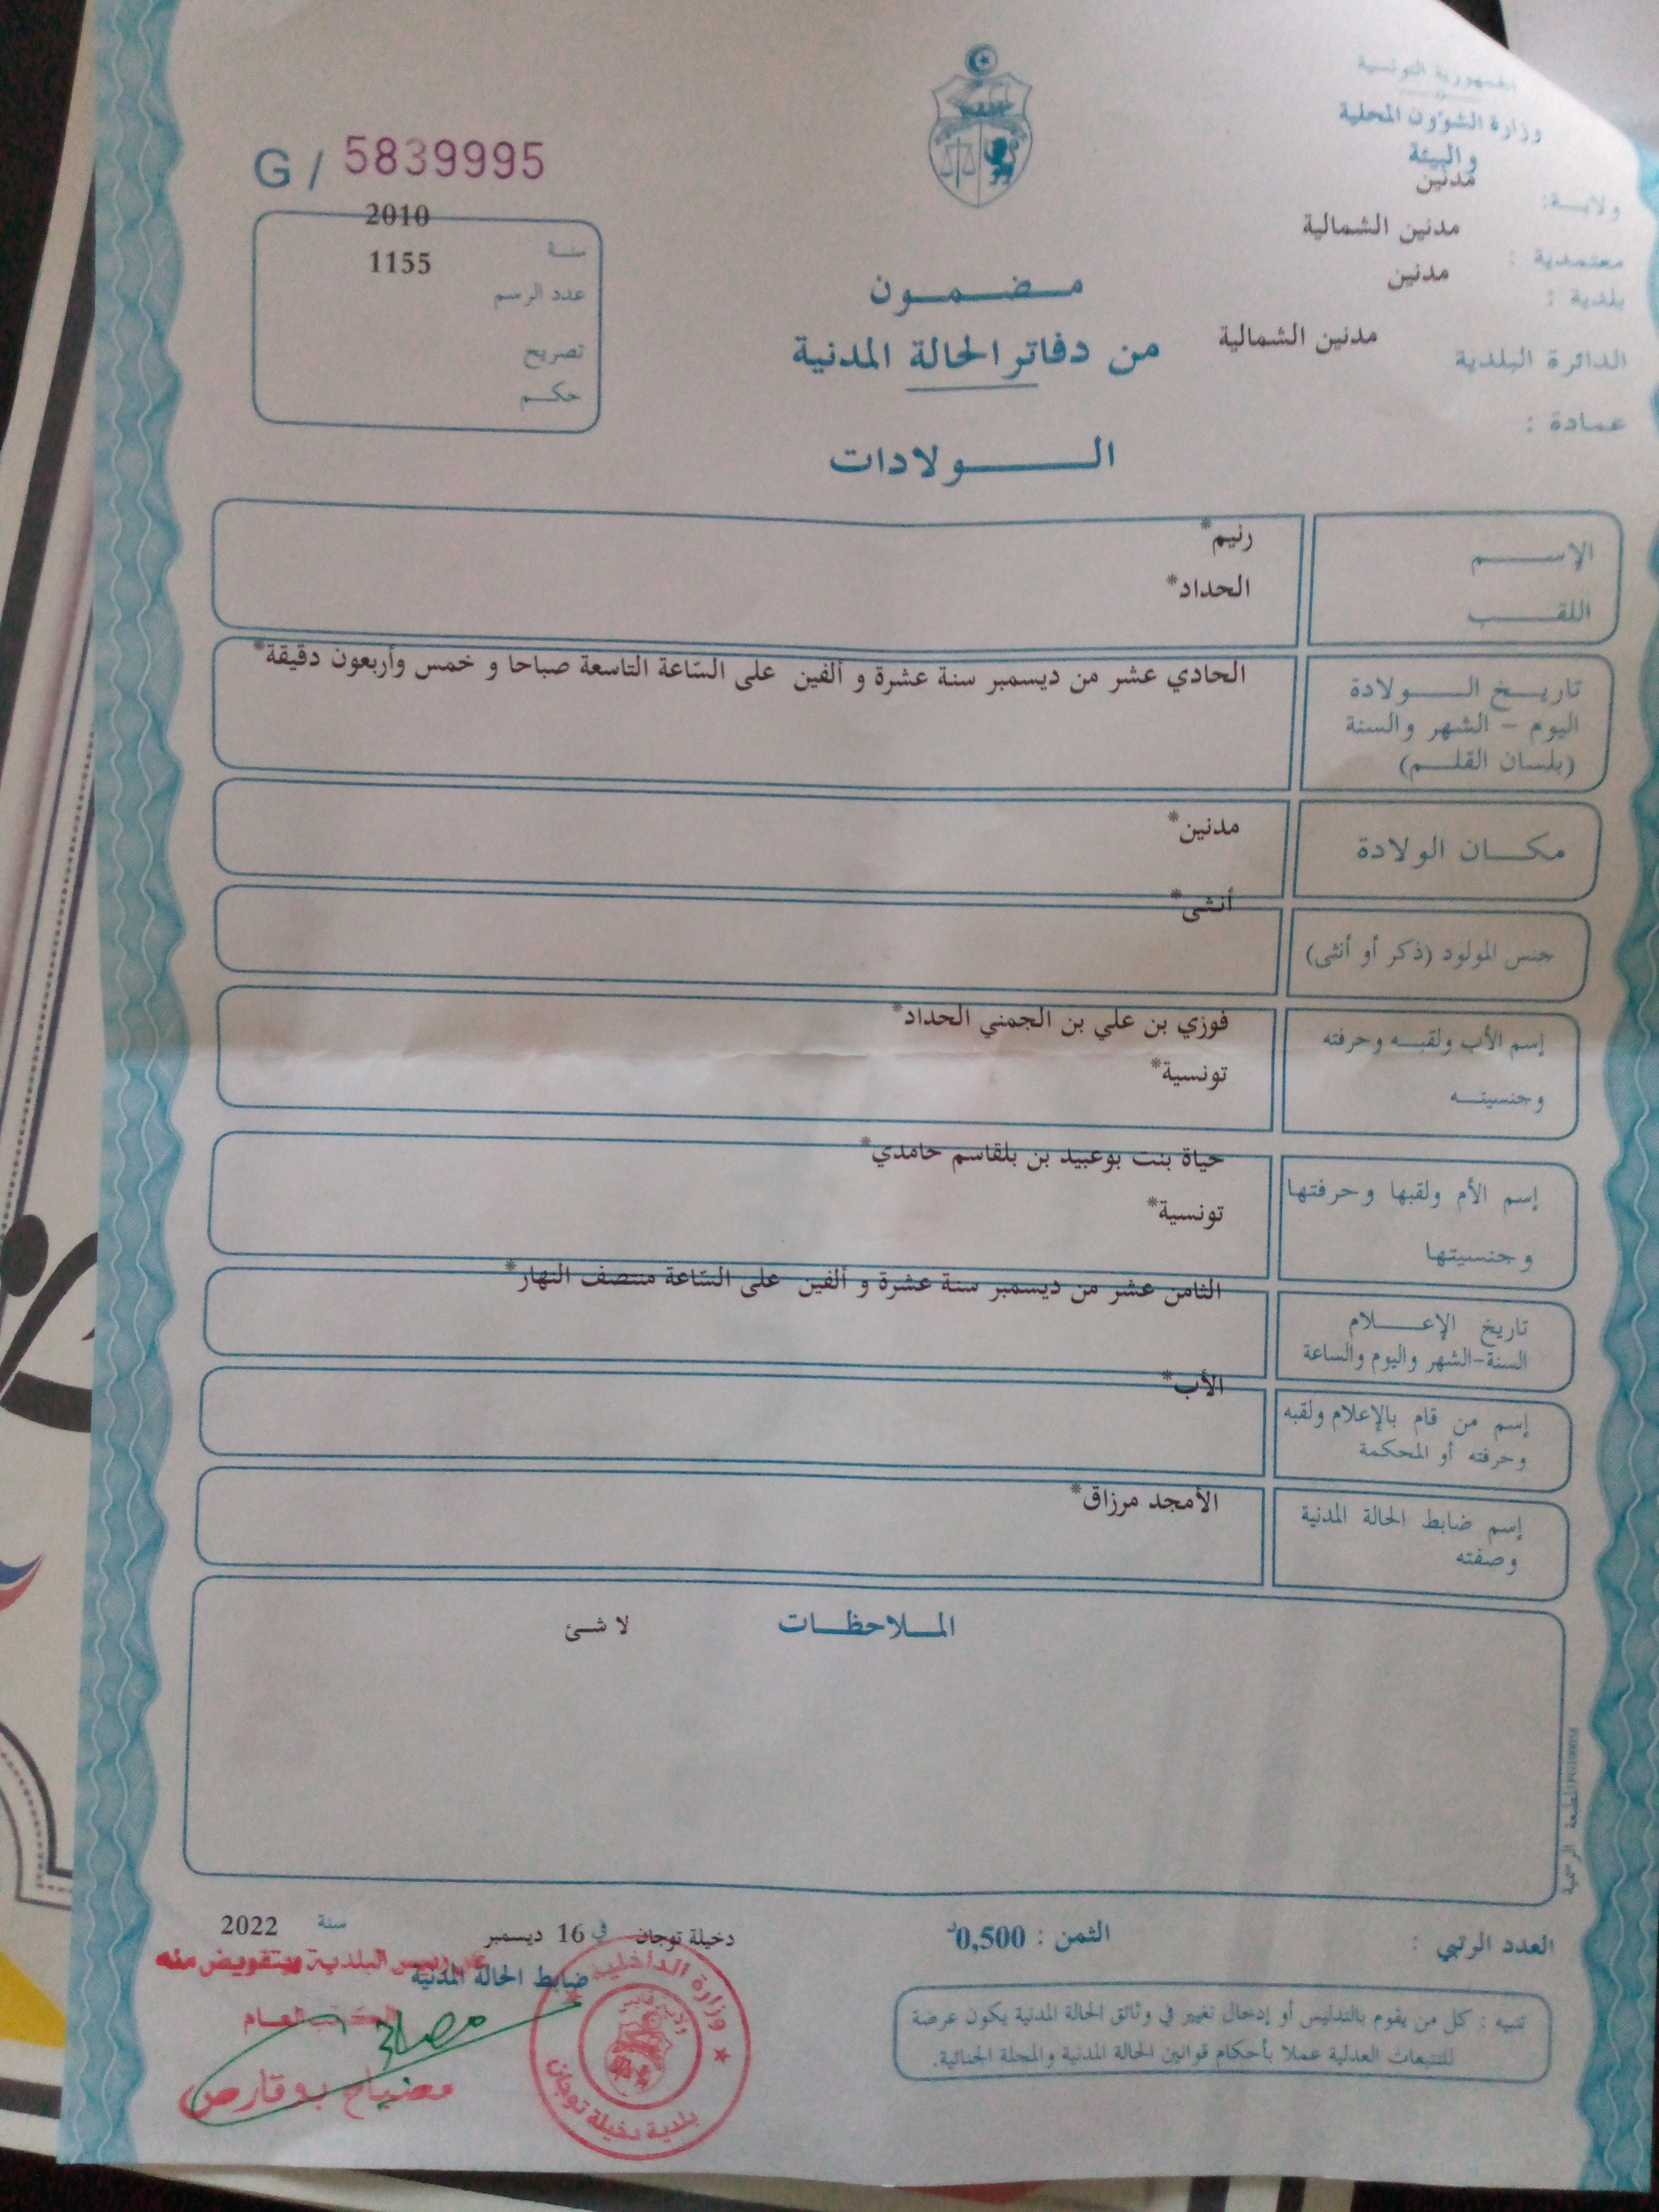 الجمهورية التونسية
وزارة الشؤون المحلية
والبيئة
ولايـــة: مدنين
معتمدية : مدنين الشمالية
بلدية : مدنين
الدائرة البلدية مدنين الشمالية
عمادة :
G / 5839995
سنة 2010
عدد الرسم 1155
تصريح
حكم
مضمون
من دفاتر الحالة المدنية
الولادات
الإسم رنيم*
اللقب الحداد*
تاريخ الولادة
اليوم - الشهر والسنة
(بلسان القلم)
الحادي عشر من ديسمبر سنة عشرة و ألفين على السّاعة التاسعة صباحا و خمس وأربعون دقيقة*
مكان الولادة مدنين*
جنس المولود (ذكر أو أنثى) أنثى*
إسم الأب ولقبه وحرفته فوزي بن علي بن الجمني الحداد*
وجنسيته تونسية*
إسم الأم ولقبها وحرفتها حياة بنت بوعبيد بن بلقاسم حامدي*
وجنسيتها تونسية*
تاريخ الإعلام
السنة-الشهر واليوم والساعة
الثامن عشر من ديسمبر سنة عشرة و ألفين على السّاعة منتصف النهار*
إسم من قام بالإعلام ولقبه
وحرفته أو المحكمة
الأب*
إسم ضابط الحالة المدنية
وصفته
الأمجد مرزاق*
الملاحظات لا شئ
المطبعة الرسمية
العدد الرتبي :
الثمن : 0,500د
دخيلة توجان في 16 ديسمبر سنة 2022
ضابط الحالة المدنية
عن رئيس البلدية وبتفويض منه
الكاتب العام
مصباح بوقارص
وزارة الداخلية
ولاية قابس
بلدية دخيلة توجان
تنبيه : كل من يقوم بالتدليس أو إدخال تغيير في وثائق الحالة المدنية يكون عرضة
للتتبعات العدلية عملا بأحكام قوانين الحالة المدنية والمجلة الجنائية.